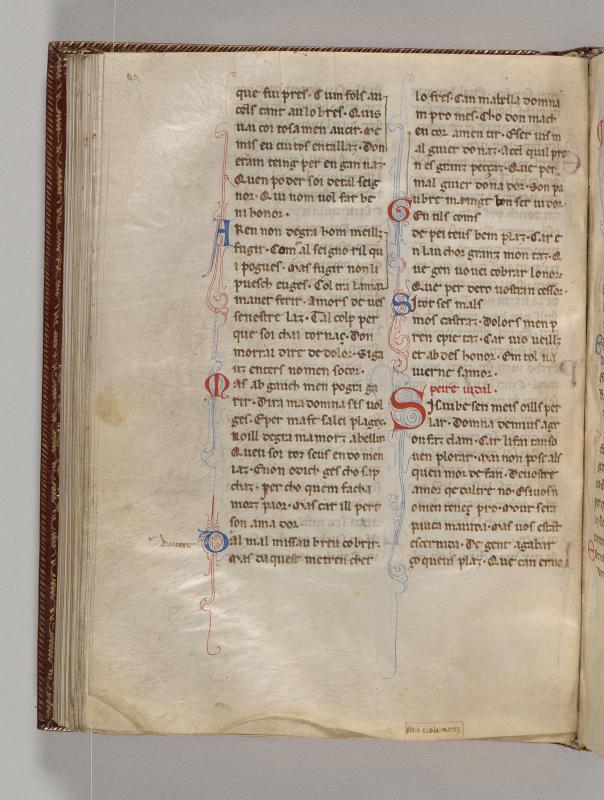 que fui pres. Cum fols au
cels cant au lo bres. Qius
uai cor tosa men aucir. Me
mis eu tut os en tallaz. Don
eram teing per en gan naz.
Quen poder soi de tal seig
nor. Qui nom uol far be
ni honor.
A Ren non degra hom meillz
fugir. Com al seigno ril qu
i pogues. Mas fugir non li
puesch euges. Col tra lamar
manet ferir. Amors de ues
senestre laz. Tal colp per
que soi chai tornaç. Don
morrai dire de dolor. Siga
uz encers no men socor.
Mas ab gauch men pogra ga
rir. Dira ma domna sis uol
ges. E per ma fe sai ei plages.
Noill degra ma morz abellir
Queu soi tot seus endo men
iaz. Enon o dich ges cho sap
chaz. per cho quem facha
mort paor. Mas car ill pert
son ama dor.
Tal mal missan breu cobrir.
Mas da quest me tren cher
lo fres. Can ma bella domna
m pro mes. Cho don mach
en cor amen tir. Eser uir m
al guier do naz. Aten qual pre
n es granz percaz. Que per
mal guier dona dor. Son pa
ubre maingt bon ser ui dor.
Gen tils coms
de pei teus bem plaz. Car e
n lauchor granz mon taz. Q
ue gen uo uei cobrar lonor.
Que per dero uostrin cessor.
Sitot ses mals
mos castraz. Dolors men p
ren epie taz. Car uio ueillz
et ab des honor. Em tol na
uierne samor.
peire uidal.
Si saube sen meis oills per
lar. Domna demius agr
on faz clam. Car li fai tanso
uen plorar. Mai non posc als
queu mor de fan. De uostre
amor qe daltre no. E si uos n
omen tenez pro. Mout sera
pauca ma uida. Mas uos estait
escernida. De gent agabar
ço quem plaz. Que can eruo